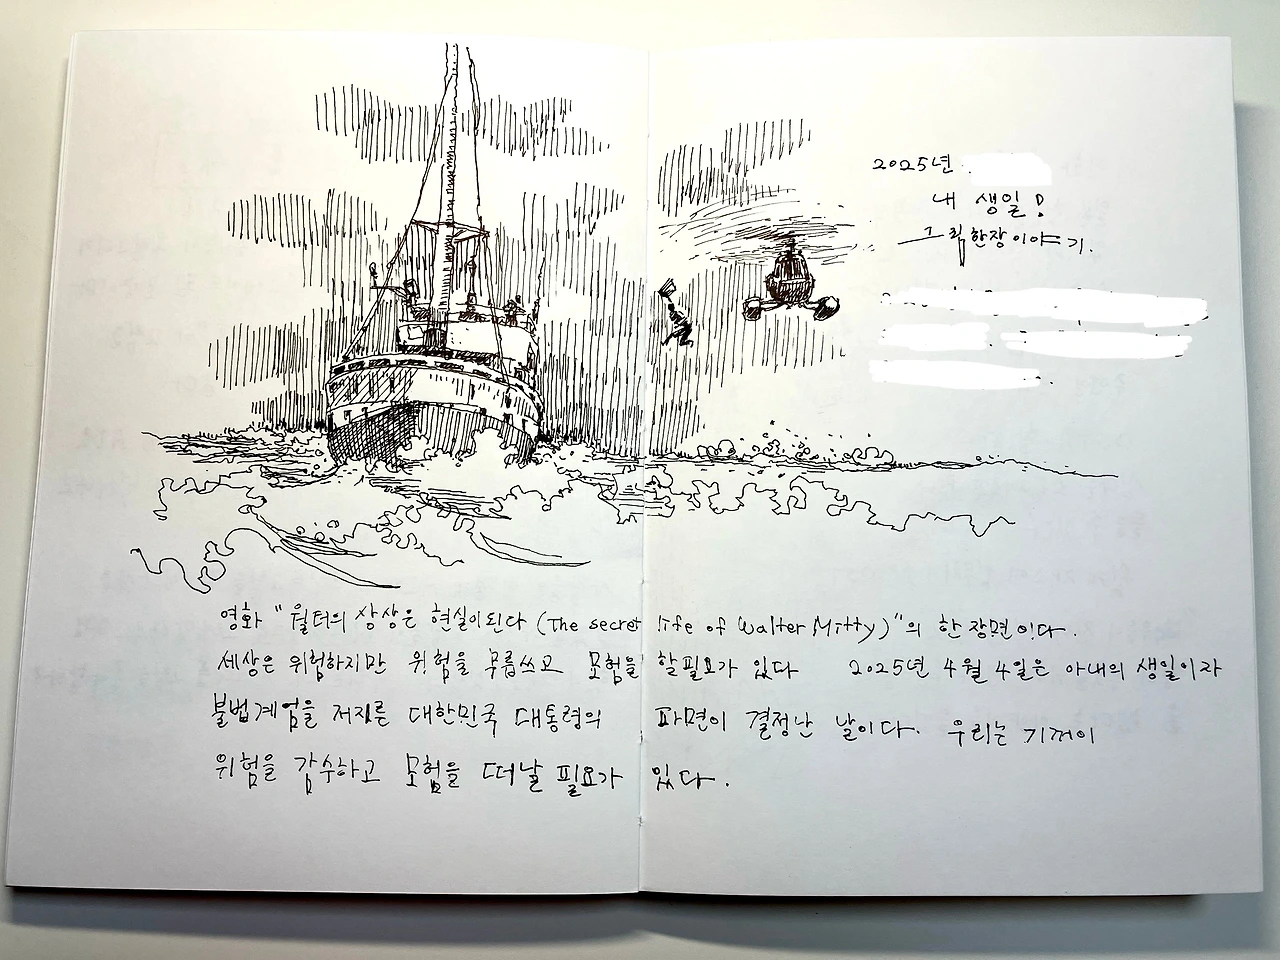 2025년
내 생일!
그림 한장 이야기.
영화 "월터의 상상은 현실이된다 (The secret life of Walter Mitty)"의 한 장면이다.
세상은 위험하지만 위험을 무릅쓰고 모험을 할 필요가 있다 2025년 4월 4일은 아내의 생일이자
불법계엄을 저지른 대한민국 대통령의 파면이 결정난 날이다. 우리는 기꺼이
위험을 감수하고 모험을 떠날 필요가 있다.